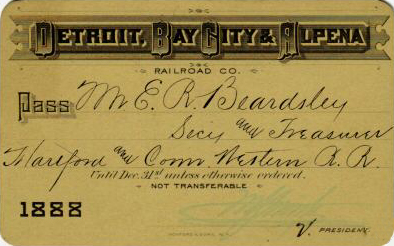 DETROIT, BAY CITY & ALPENA
RAILROAD CO.
Pass Mr E. R. Beardsley
Secy and Treasurer
Hartford and Conn. Western R. R.
Until Dec. 31st unless otherwise ordered.
NOT TRANSFERABLE
1888
V. PRESIDENT.